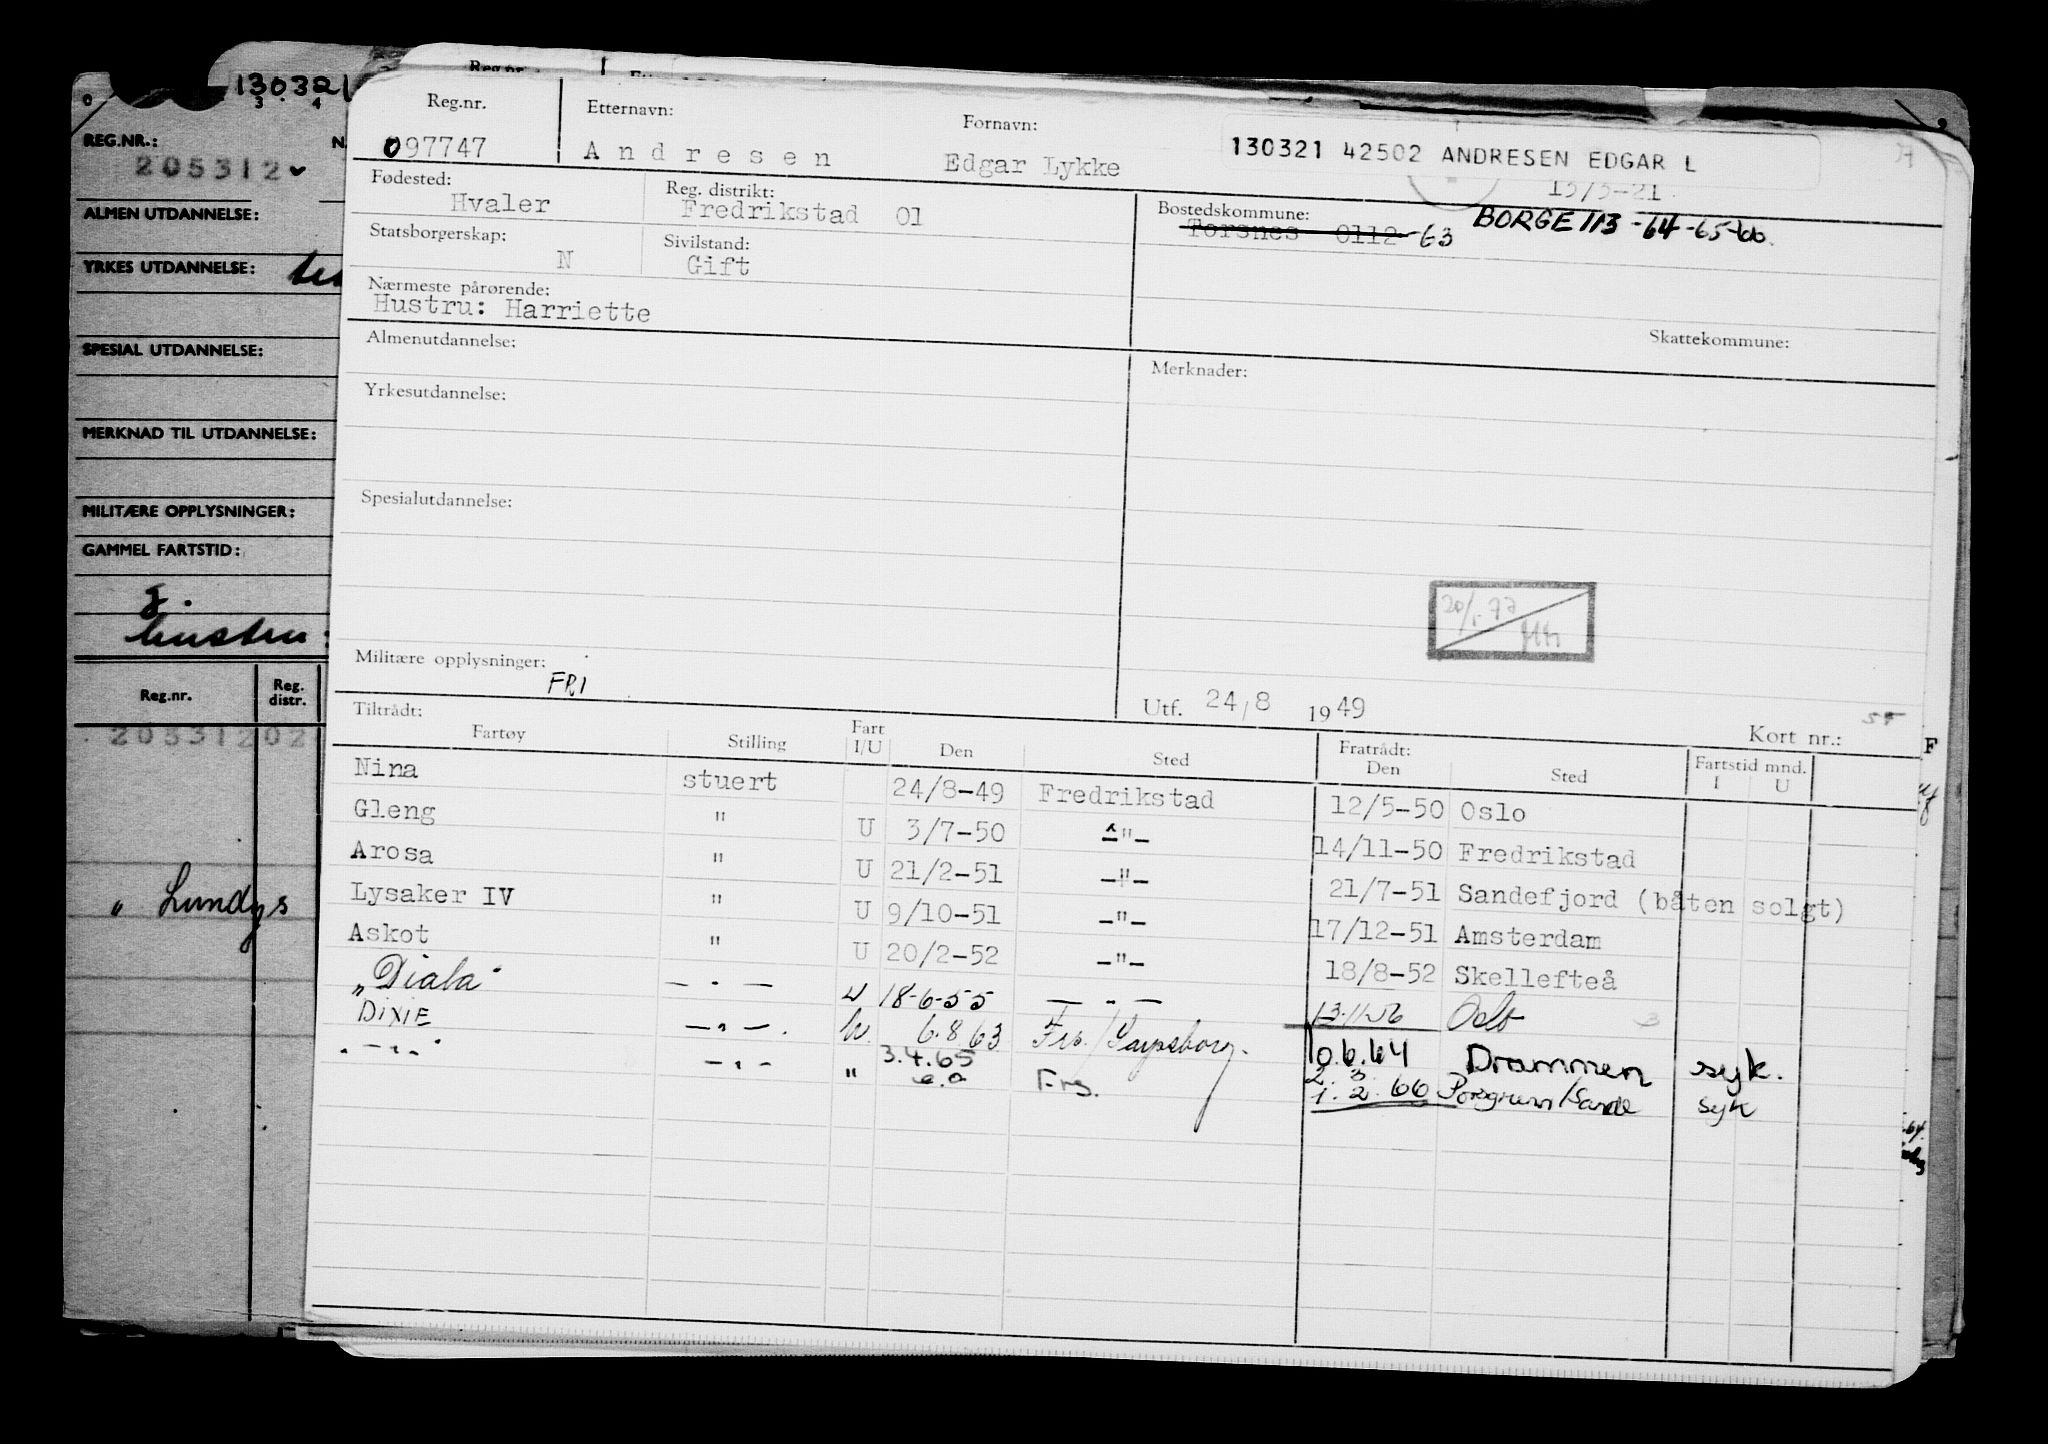 130321
3 4
REG.NR.:
205312
ALMEN UTDANNELSE:
YRKES UTDANNELSE:
SPESIAL UTDANNELSE:
MERKNAD TIL UTDANNELSE:
MILITÆRE OPPLYSNINGER:
GAMMEL FARTSTID:
g.
hustru:
Reg.nr. Reg. distr.
205312 02
" Lundys
Reg.nr. Etternavn: Fornavn:
097747 Andresen Edgar Lykke
130321 42502 ANDRESEN EDGAR L
13/3-21
Fødested: Reg. distrikt: Bostedskommune:
Hvaler Fredrikstad 01 Torsnes 0112-63 BORGE 113-64-65-66.
Statsborgerskap: Sivilstand:
N Gift
Nærmeste pårørende:
Hustru: Harriette
Skattekommune:
Almenutdannelse: Merknader:
Yrkesutdannelse:
Spesialutdannelse:
20/1-77
Militære opplysninger:
FRI
Utf. 24/8 1949
Kort nr.:
Tiltrådt: Fratrådt:
Fartøy Stilling Fart I/U Den Sted Den Sted Fartstid mnd. I U
Nina stuert 24/8-49 Fredrikstad 12/5-50 Oslo
Gleng " U 3/7-50 -"- 14/11-50 Fredrikstad
Arosa " U 21/2-51 -"- 21/7-51 Sandefjord (båten solgt)
Lysaker IV " U 9/10-51 -"- 17/12-51 Amsterdam
Askot " U 20/2-52 -"- 18/8-52 Skellefteå
"Diala" - " - u 18-6-55 - " - Oslo
DIXIE - " - . U. 6.8.63 Frs./Sarpsborg. 10.6.64 Drammen syk.
- " - - " - " 3.4.65 Frs. 1.2.66 Porsgrunn/Sande syk